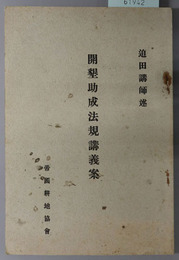 迫田講師述
開墾助成法規講義案
帝國耕地協會